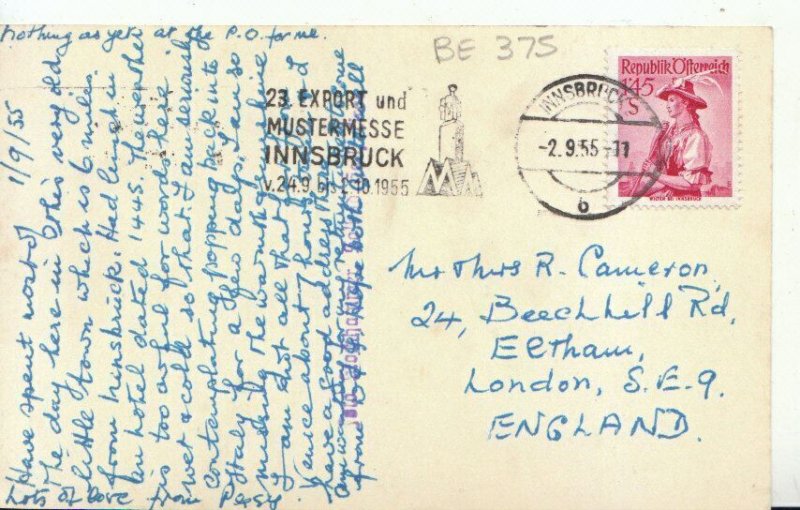 nothing as yet at the P.O. for me.
1/9/55
Have spent most of
the day here in this very old
little town which is 6 miles
from Innsbruck. Had lunch in
an hotel dated 1445. The weather
is too awful for words here
wet & cold so that I am seriously
contemplating popping back into
Italy for a few days. I am so
missing the warmth & sunshine
I am not all that far from
Venice about 7 hours & I
have a good address there
Lots of love from Peggy.
BE 375
23. EXPORT und
MUSTERMESSE
INNSBRUCK
v. 24.9. bis 2.10.1955
INNSBRUCK
-2.9.55-11
6
Republik Österreich
1'45
S
WIPPTAL BEI INNSBRUCK
Mr & Mrs R. Cameron,
24, Beechhill Rd,
Eltham,
London, S.E.9.
ENGLAND.